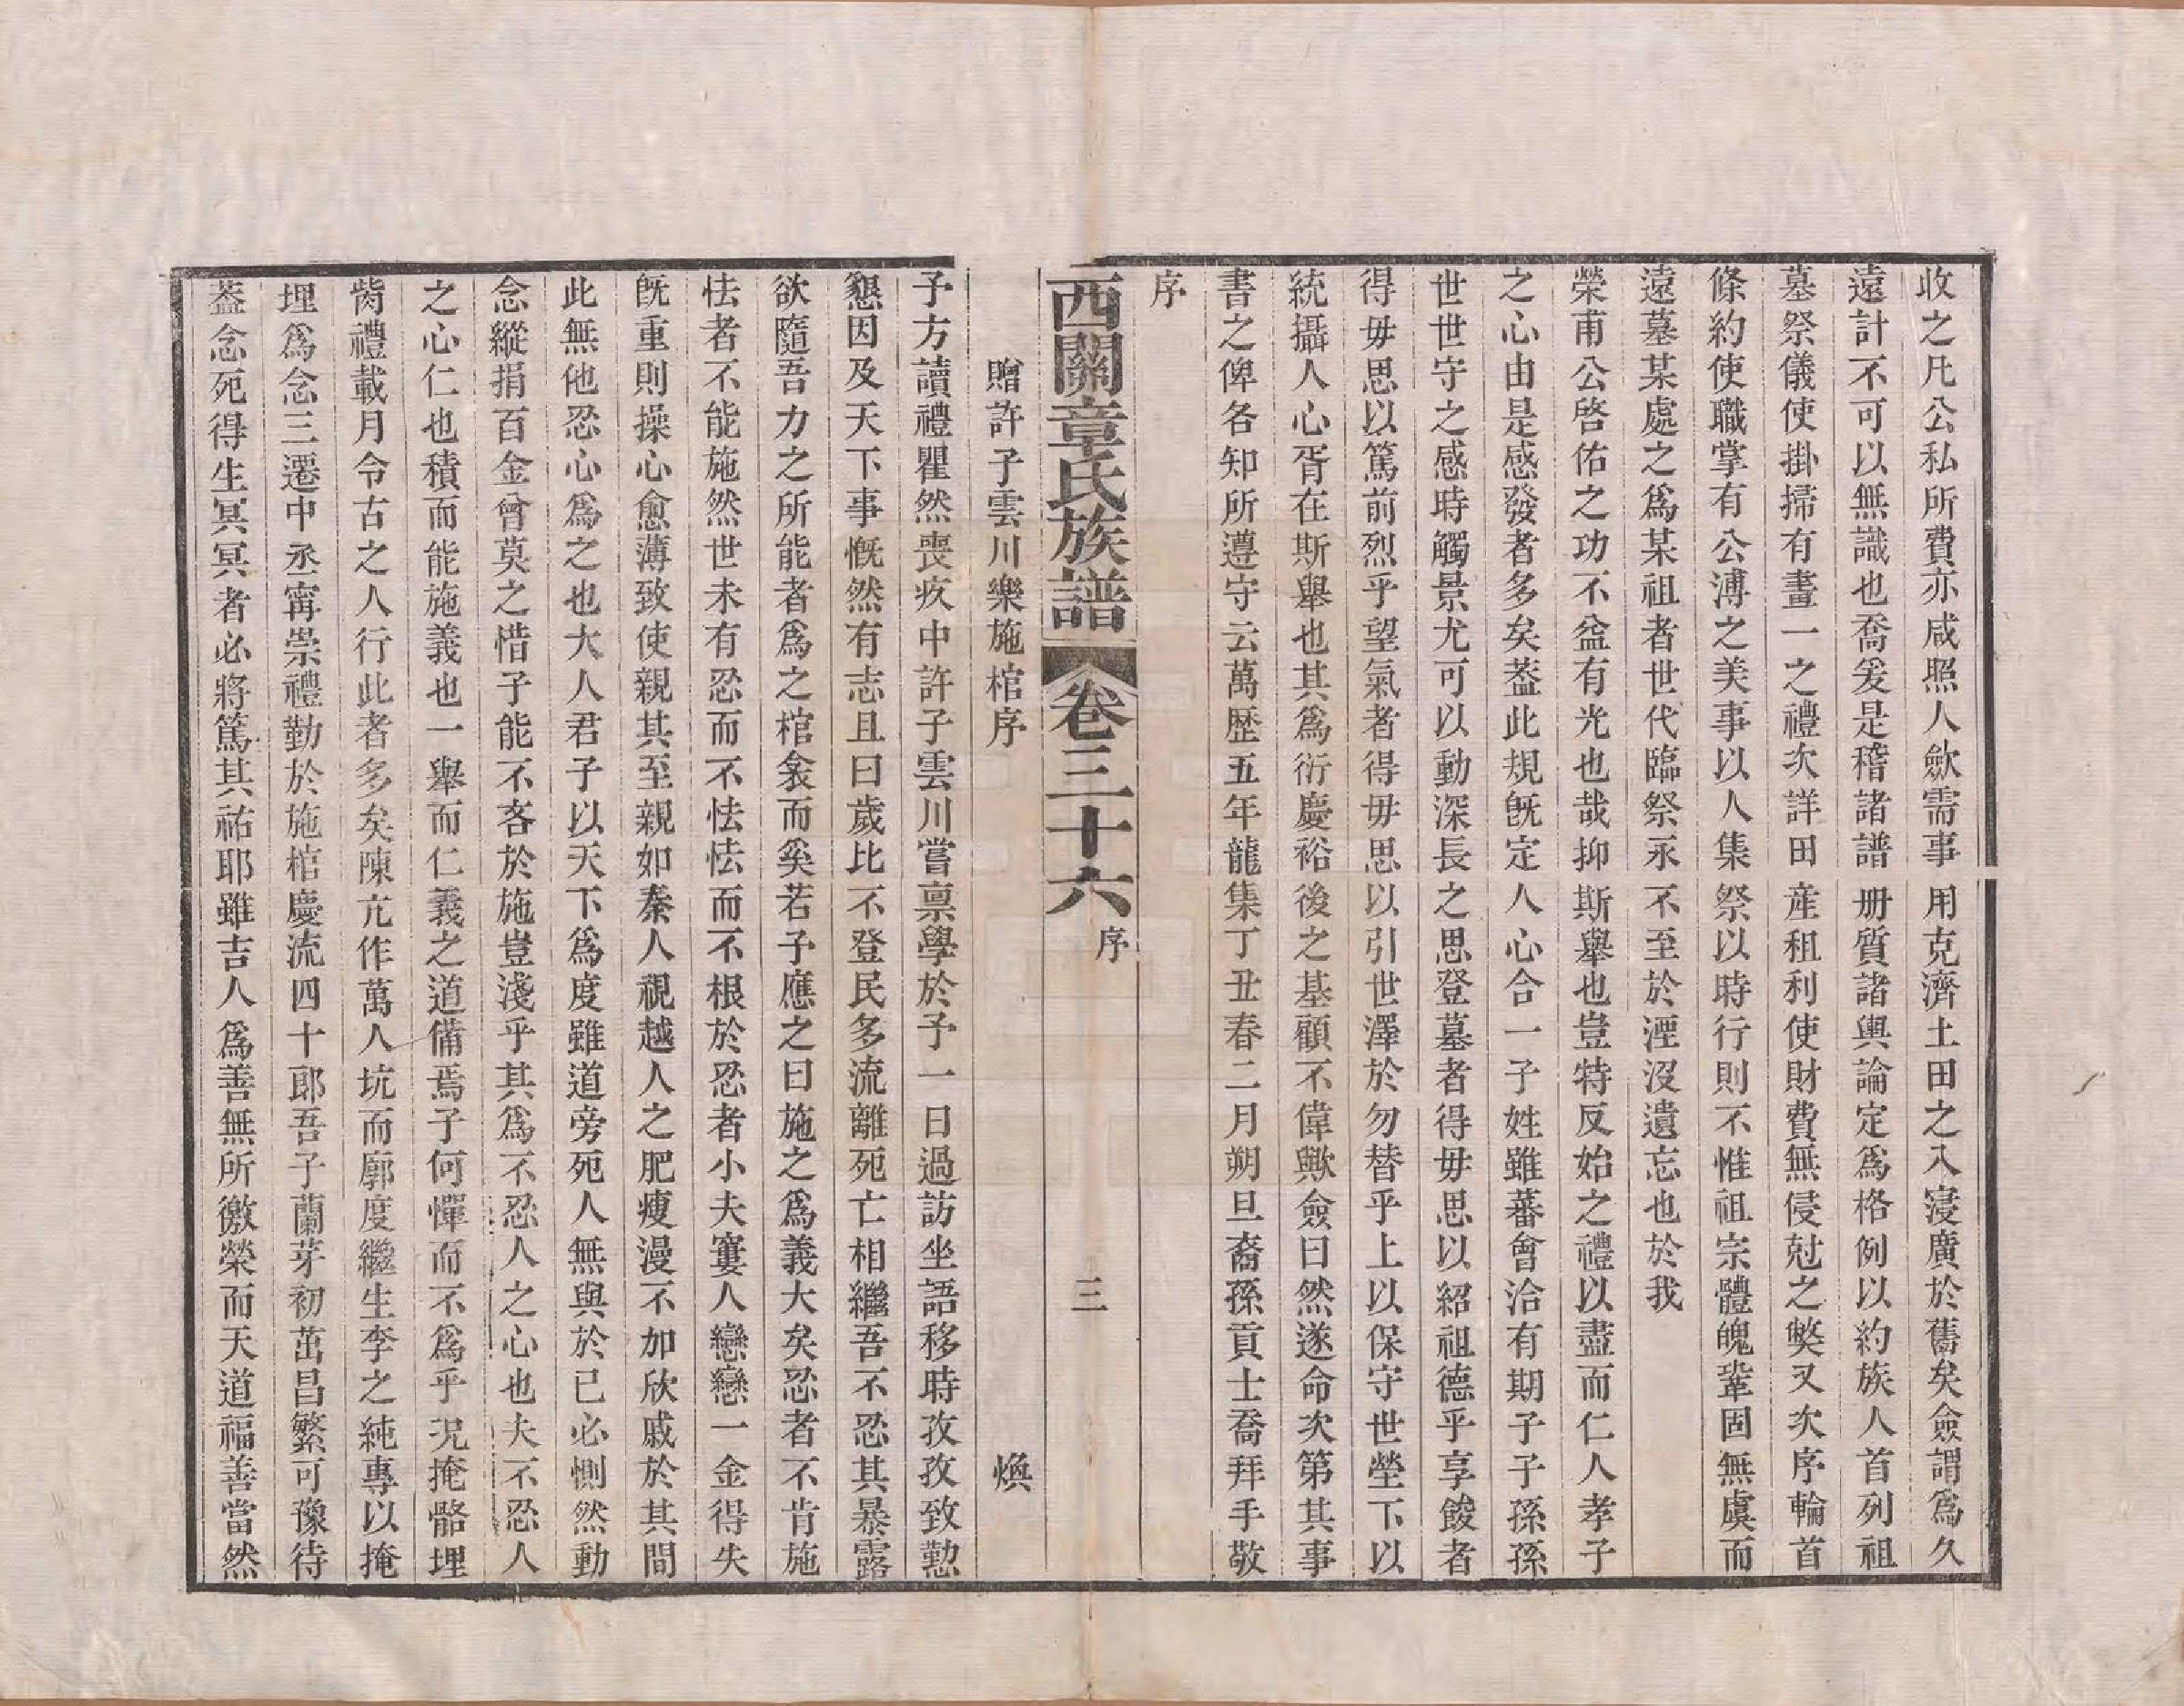 收之凡公私所費亦咸照人歛需事用克濟土田之入寖廣於舊矣僉謂爲久
遠計不可以無識也喬爰是稽諸譜册質諸輿論定爲格例以約族人首列祖
墓祭儀使掛掃有畫一之禮次詳田產租利使財費無侵尅之獘又次序輪首
條約使職掌有公溥之美事以人集祭以時行則不惟祖宗體魄鞏固無虞而
遠墓某處之爲某祖者世代臨祭永不至於湮沒遺忘也於我
榮甫公啓佑之功不益有光也哉抑斯舉也豈特反始之禮以盡而仁人孝子
之心由是感發者多矣葢此規旣定人心合一子姓雖蕃會洽有期子子孫孫
世世守之感時觸景尤可以動深長之思登墓者得毋思以紹祖德乎享餕者
得毋思以篤前烈乎望氣者得毋思以引世澤於勿替乎上以保守世塋下以
統攝人心胥在斯舉也其爲衍慶裕後之基顧不偉歟僉曰然遂命次第其事
書之俾各知所遵守云萬歷五年龍集丁丑春二月朔旦裔孫貢士喬拜手敬
序
西關章氏族譜 卷三十六 序 三
贈許子雲川樂施棺序 煥
予方讀禮瞿然喪疚中許子雲川嘗稟學於予一日過訪坐語移時孜孜致懃
懇因及天下事慨然有志且曰歲比不登民多流離死亡相繼吾不忍其暴露
欲隨吾力之所能者爲之棺衾而奚若子應之曰施之爲義大矣忍者不肯施
怯者不能施然世未有忍而不怯怯而不根於忍者小夫窶人戀戀一金得失
旣重則操心愈薄致使親其至親如秦人視越人之肥瘦漫不加欣戚於其間
此無他忍心爲之也大人君子以天下爲度雖道旁死人無與於已必惻然動
念縱捐百金曾莫之惜子能不吝於施豈淺乎其爲不忍人之心也夫不忍人
之心仁也積而能施義也一舉而仁義之道備焉子何憚而不爲乎况掩骼埋
胔禮載月令古之人行此者多矣陳亢作萬人坑而廓度繼生李之純專以掩
埋爲念三遷中丞甯崇禮勤於施棺慶流四十郎吾子蘭芽初茁昌繁可豫待
葢念死得生冥冥者必將篤其祜耶雖吉人爲善無所徼榮而天道福善當然